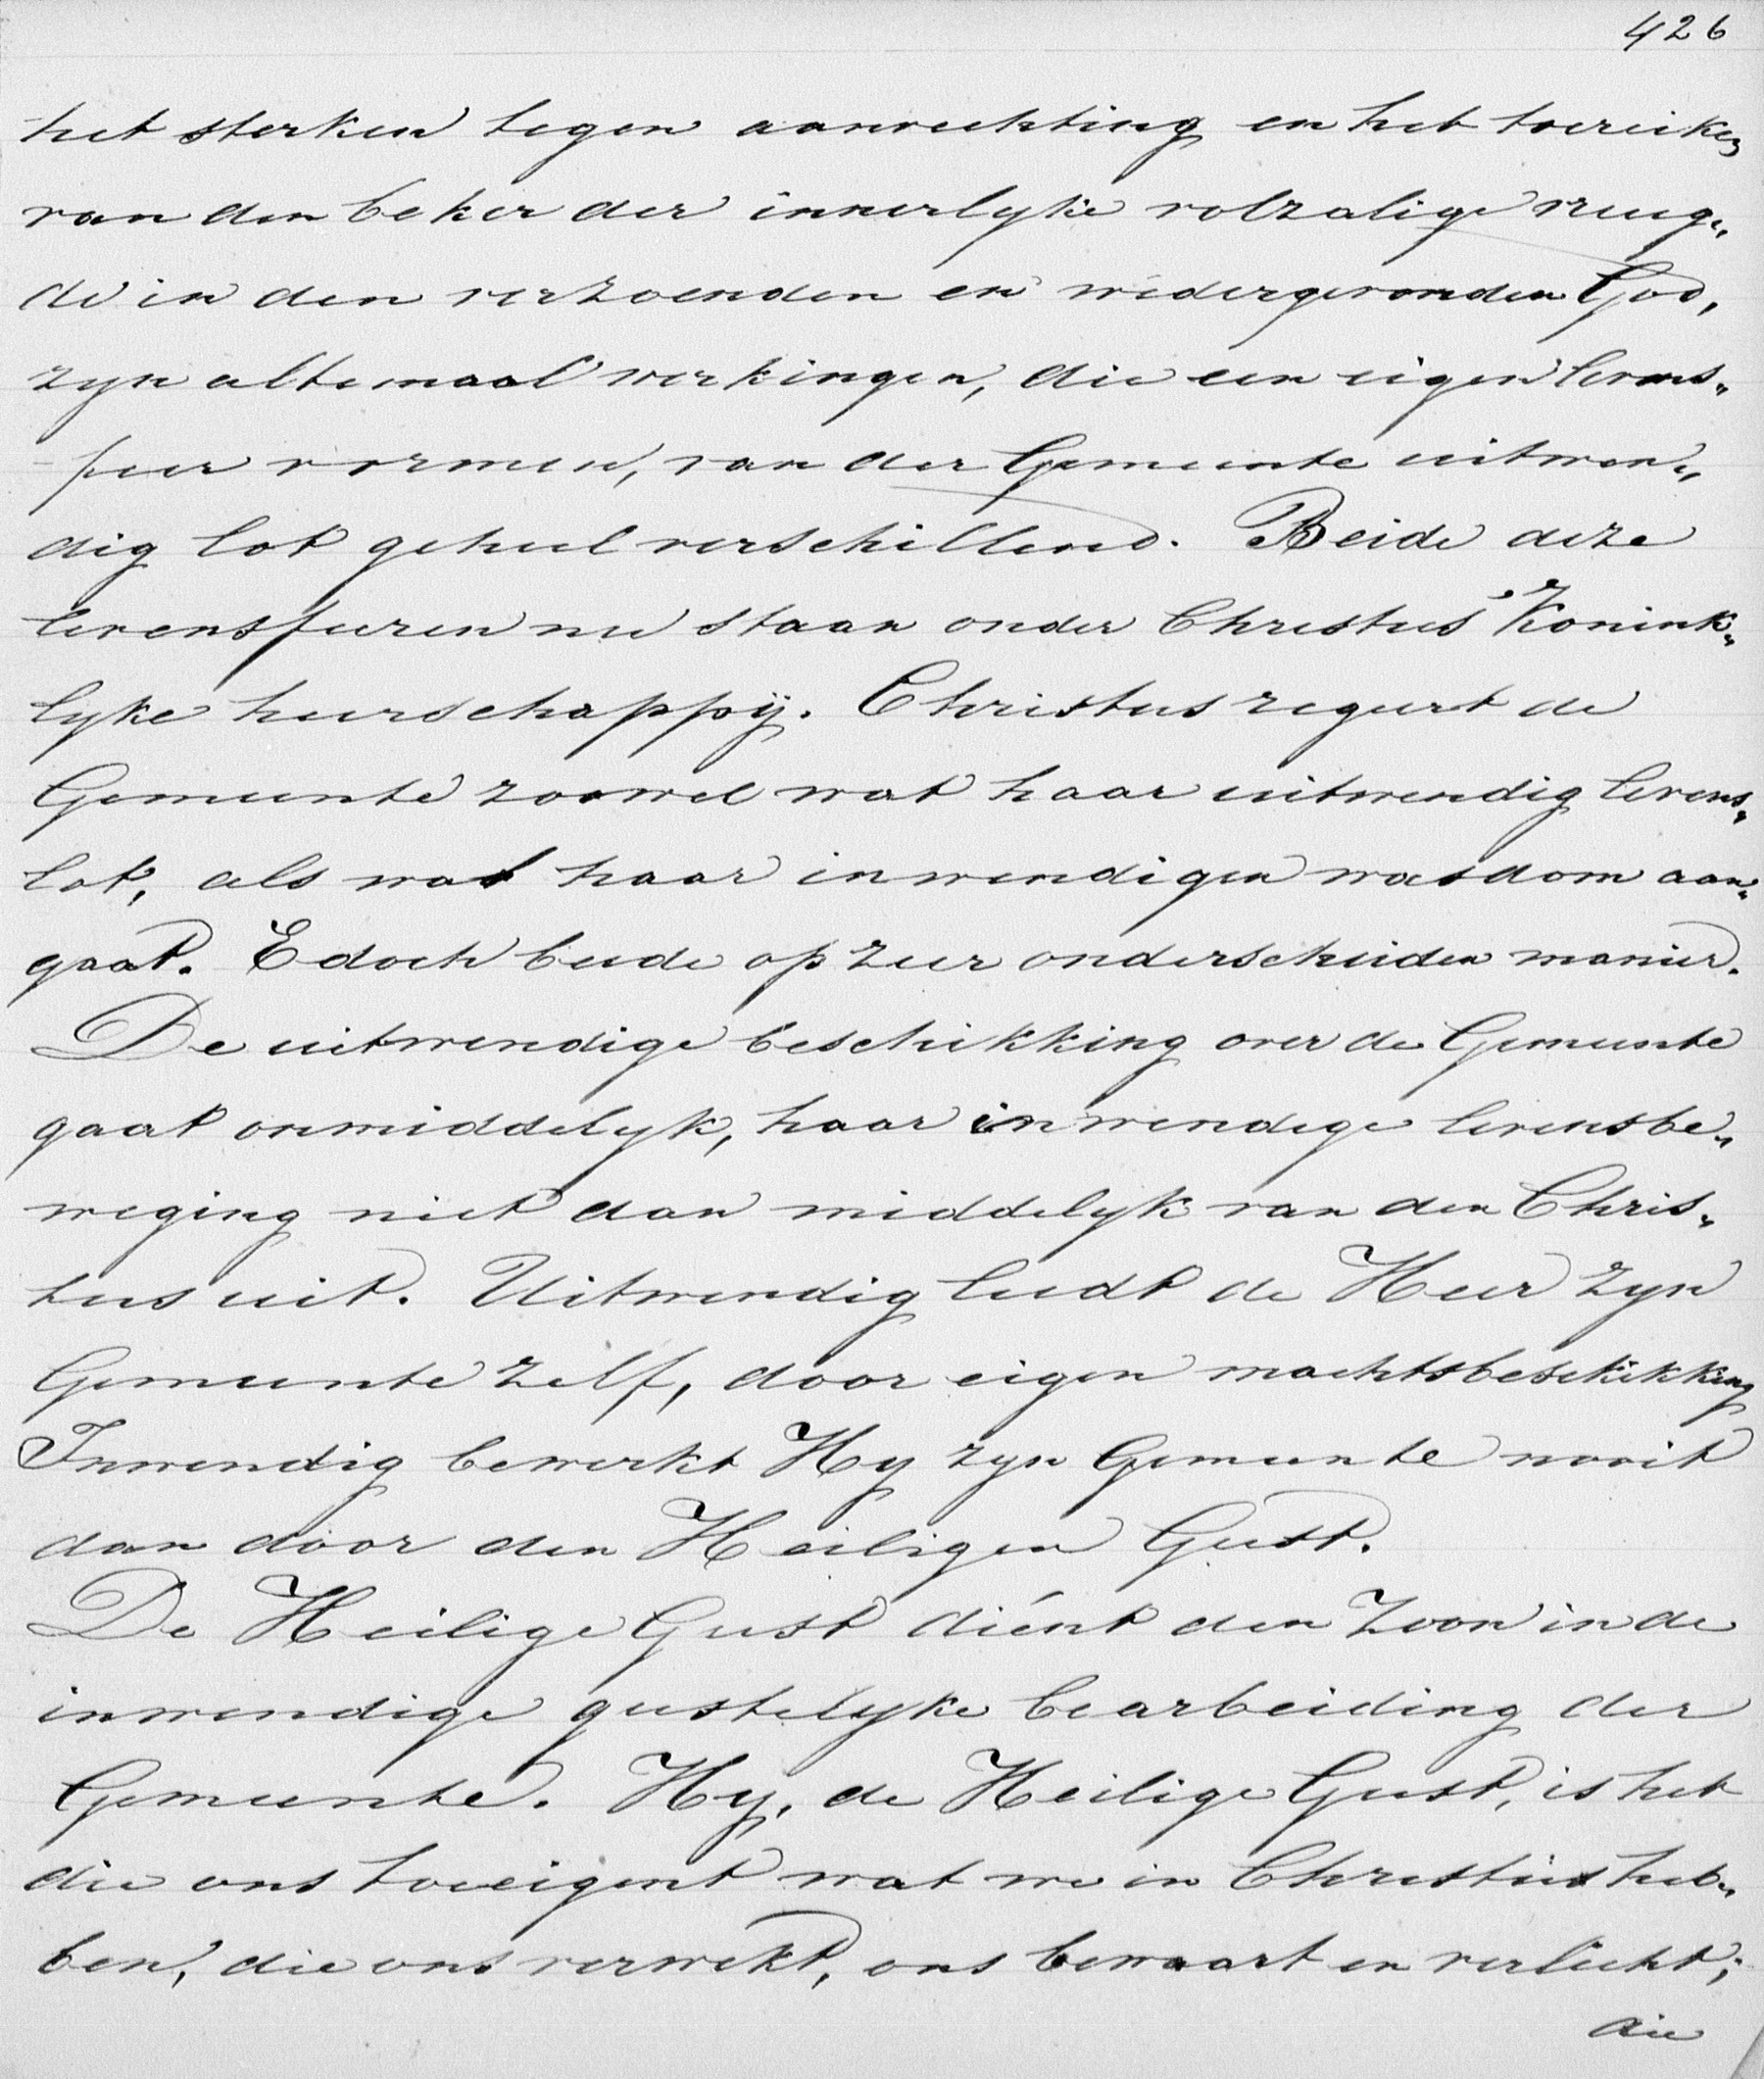 426
het sterken tegen aanvechting en het toereiken
van den beker der innerlyke volzalige vreug„
de in den verzoenden en wedergevonden God,
zyn altemaal werkingen, die een eigen levens„
feer vormen, van der Gemeente uitwen„
dig lot geheel verschillend. Beide deze
levensfeeren nu staan onder Christus' Konink„
lyke heerschappÿ. Christus regeert de
Gemeente zoowel wat haar uitwendig levens„
lot, als wat haar inwendigen wasdom aan„
gaat. Edoch beide op zeer onderscheiden manier.
De uitwendige beschikking over de Gemeente
gaat onmiddelyk, haar inwendige levensbe„
weging niet dan middelyk van den Chris„
tus uit. Uitwendig leidt de Heer zyn
Gemeente zelf, door eigen machtsbeschikking
Inwendig bewerkt Hy zyn Gemeente nooit
dan door den Heiligen Geest.
De Heilige Geest diént den Zoon in de
inwendige geestelyke bearbeiding der
Gemeente. Hy, de Heilige Geest, is het
die ons toeeigent wat we in Christus heb„
ben, die ons verwekt, ons bewaart en verlicht;
die